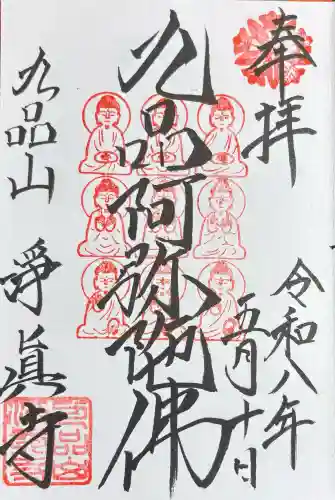 奉拝
令和八年
五月十日
九品阿弥陀佛
九品山
淨眞寺